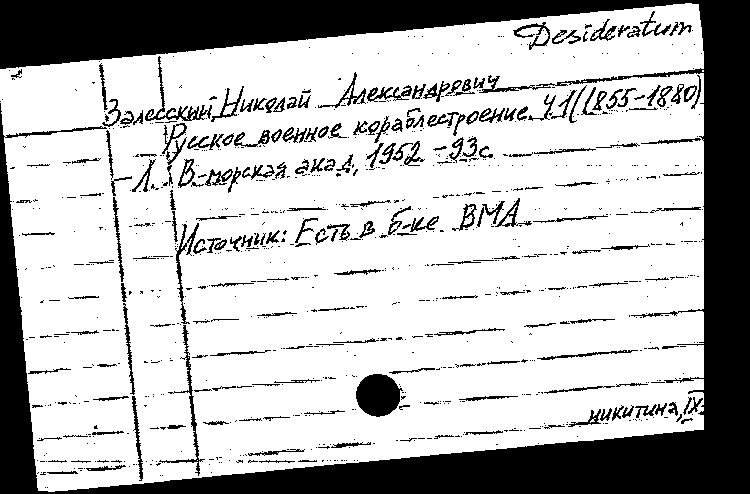 Desideratum
Залесский, Николай Александрович
Русское военное кораблестроение. Ч.1 (1855-1880)
- Л.: В.-морская акад., 1952 - 93с.
Источник: Есть в б-ке ВМА.
никитина, IX